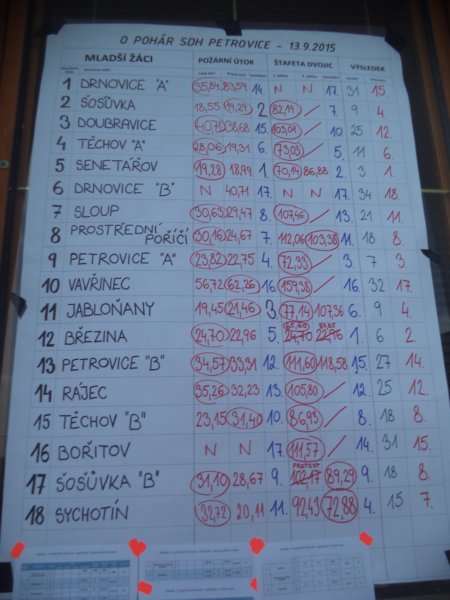 O POHÁR SDH PETROVICE - 13.9.2015
MLADŠÍ ŽÁCI POŽÁRNÍ ÚTOK ŠTAFETA DVOJIC VÝSLEDEK
1 DRNOVICE "A" 35,84 83,59 14. N N 17. 31 15.
2 ŠOŠŮVKA 18,55 19,29 2 82,19 / 7. 9 4.
3 DOUBRAVICE 40,71 38,68 15. 103,01 / 10. 25 12.
4 TĚCHOV "A" 28,06 19,31 6. 73,03 / 5. 11 6.
5 SENETÁŘOV 19,28 18,99 1. 70,14 86,88 2. 3 1.
6 DRNOVICE "B" N 40,71 17. N N 17. 34 18.
7 SLOUP 30,63 29,47 8. 107,46 / 13. 21 11.
8 PROSTŘEDNÍ POŘÍČÍ 30,16 24,67 7. 112,06 103,38 11. 18 8.
9 PETROVICE "A" 23,82 22,75 4. 72,33 / 3. 7 3.
10 VAVŘINEC 56,72 62,26 16. 159,38 / 16. 32 17.
11 JABLOŇANY 19,45 21,46 3. 77,14 107,36 6. 9 4.
12 BŘEZINA 24,70 22,96 5. 24,70 22,96 1. 6 2.
13 PETROVICE "B" 34,57 33,31 12. 111,60 118,58 15. 27 14.
14 RÁJEC 35,26 32,23 13. 105,80 / 12. 25 12.
15 TĚCHOV "B" 23,15 31,40 10. 86,93 / 8. 18 8.
16 BOŘITOV N N 17. 111,57 / 14. 31 15.
17 ŠOŠŮVKA "B" 31,10 28,67 9. PROTEST 102,17 89,29 9. 18 8.
18 SYCHOTÍN 32,72 20,11 11. 92,43 72,88 4. 15 7.